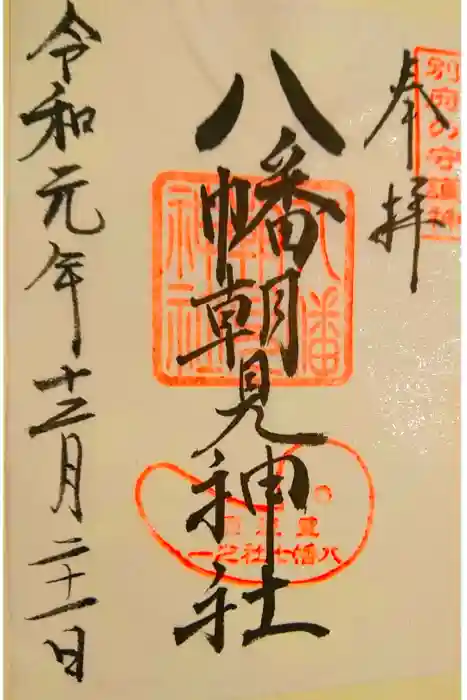 別府の守護神
奉拝
八幡朝見神社
八幡朝見神社
豊後国
八幡七社之一
令和元年十二月二十一日